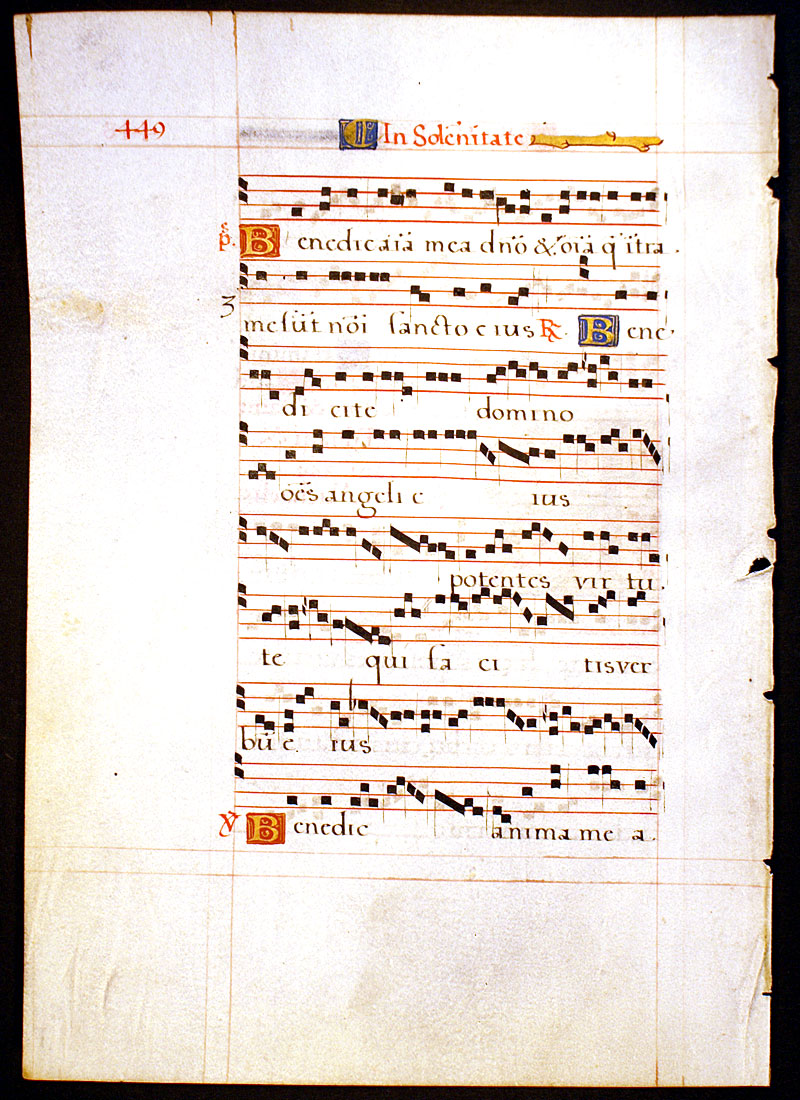 449 In Solēnitate
ps. Benedic aīā mea dnō & oīā q̄ ītra
3 me sūt nōi sancto eius R. Bene
di cite domino
oēs angeli e ius
potentes vir tu
te qui fa ci tis ver
bū e ius
V Benedic anima me a.